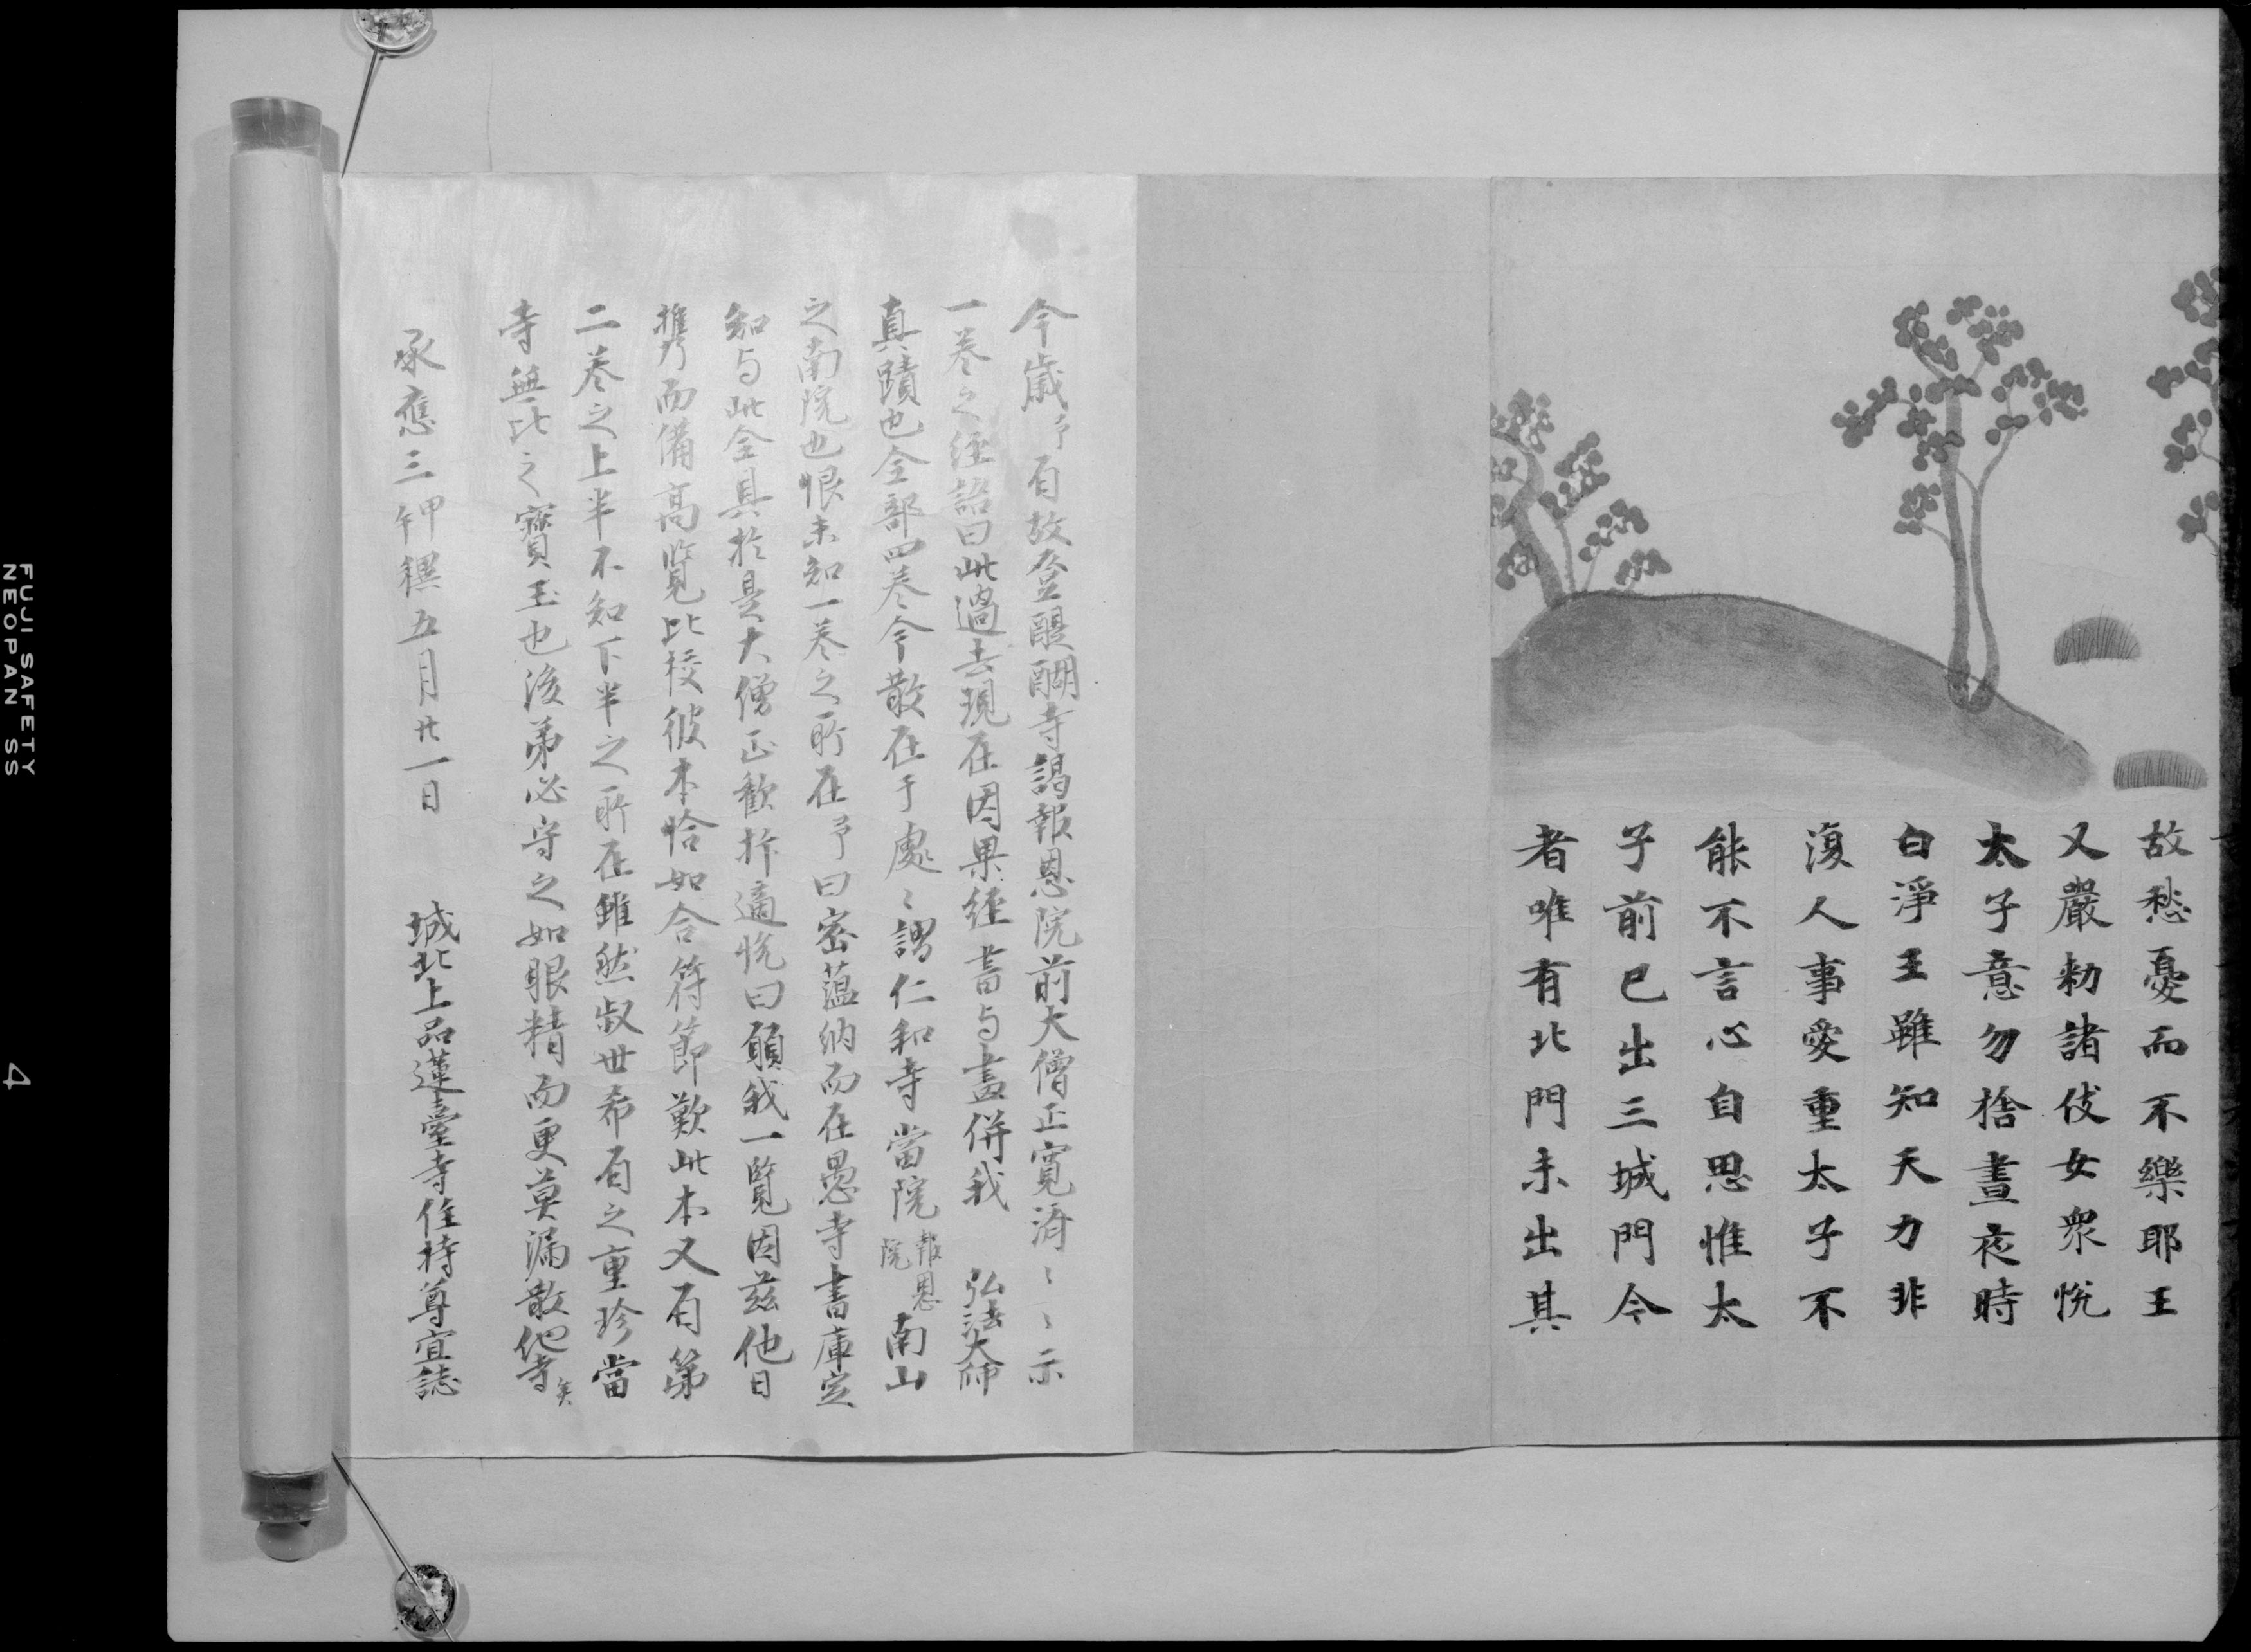 故愁憂而不樂耶王
又嚴勑諸伎女衆悅
太子意勿捨晝夜時
白淨王雖知天力非
復人事愛重太子不
能不言心自思惟太
子前已出三城門今
者唯有北門未出其
今歲予有故登醍醐寺謁報恩院前大僧正寛済〻〻示
一卷之経詔曰此過去現在因果経書与畫併我 弘法大師
真蹟也全部四卷今散在于處〻謂仁和寺當院報恩院南山
之南院也恨未知一卷之所在予曰密蘊納而在愚寺書庫定
知与此全具於是大僧正歡抃適悅曰願我一覽因茲他日
携而備高覽比校彼本恰如合符節歎此本又有第
二卷之上半不知下半之所在雖然叔世希有之重珍當
寺無比之寶玉也後弟必守之如眼精而更莫漏散他寺矣
承應三甲午穪五月廿一日 城北上品蓮臺寺住持尊宜誌
FUJI SAFETY
NEOPAN SS
4